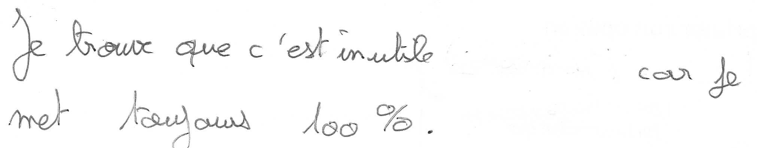 Je trouve que c'est inutile car je
met toujours 100 %.